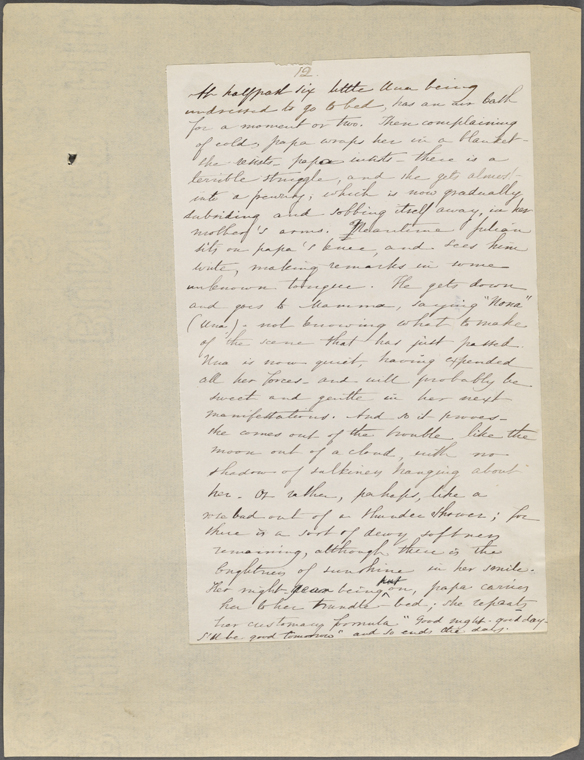 12
At halfpast six little Una being
undressed to go to bed, has an air bath
for a moment or two. Then complaining
of cold, papa wraps her in a blanket-
she resists, papa insists - there is a
terrible struggle, and she gets almost
into a frenzy, which is now gradually
subsiding and sobbing itself away, in her
mother's arms. Meantime Julian
sits on papa's knee, and sees him
write, making remarks in some
unknown tongue. He gets down
and goes to Mamma, saying "Nona"
(Una) - not knowing what to make
of the scene that has just passed.
Una is now quiet, having expended
all her forces - and will probably be
sweet and gentle in her next
manifestations. And so it proves-
she comes out of the trouble like the
moon out of a cloud, with no
shadow of sulkiness hanging about
her. Or rather, perhaps, like a
rosebud out of a thunder shower; for
there is a sort of dewy softness
remaining, although there is the
brightness of sunshine in her smile.
Her night-gear being put on, papa carries
her to her trundle-bed; she repeats
her customary formula "Good night - good day-
I'll be good tomorrow" and so ends the day.